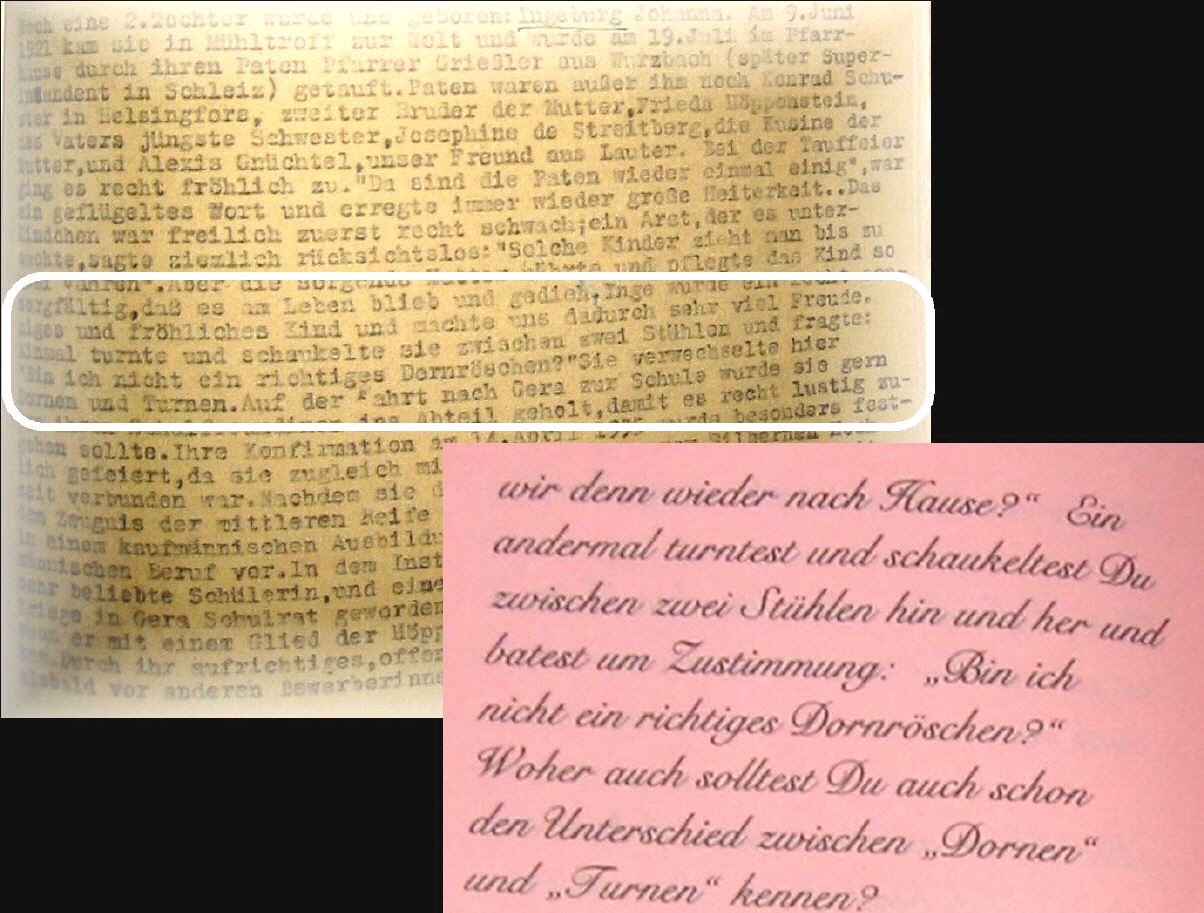 Noch eine 2.Tochter wurde uns geboren: Ingeburg Johanna. Am 9.Juni
1921 kam sie in Mühltroff zur Welt und wurde am 19.Juli im Pfarr-
hause durch ihren Paten Pfarrer Grießler aus Wurzbach (später Super-
intendent in Schleiz) getauft.Paten waren außer ihm noch Konrad Schu-
ster in Helsingfors, zweiter Bruder der Mutter,Frieda Höppenstein,
des Vaters jüngste Schwester,Josephine de Streitberg,die Kusine der
Mutter,und Alexis Gnüchtel,unser Freund aus Lauter. Bei der Tauffeier
ging es recht fröhlich zu."Da sind die Paten wieder einmal einig",war
ein geflügeltes Wort und erregte immer wieder große Heiterkeit..Das
Kindchen war freilich zuerst recht schwach;ein Arzt,der es unter-
suchte,sagte ziemlich rücksichtslos:"Solche Kinder zieht man bis zu
Jahren".Aber die sorgende Mutter nährte und pflegte das Kind so
sorgfältig,daß es am Leben blieb und gedieh,Inge wurde ein
niges und fröhliches Kind und machte uns dadurch sehr viel Freude.
Einmal turnte und schaukelte sie zwischen zwei Stühlen und fragte:
"Bin ich nicht ein richtiges Dornröschen?"Sie verwechselte hier
Dornen und Turnen.Auf der Fahrt nach Gera zur Schule wurde sie gern
ins Abteil geholt,damit es recht lustig zu-
gehen sollte.Ihre Konfirmation am 14.April wurde besonders fest-
lich gefeiert,da sie zugleich mi
seit verbunden war.Nachdem sie d
dem Zeugnis der mittleren Reife
in einem kaufmännischen Ausbildu
männischen Beruf vor.In dem Inst
sehr beliebte Schülerin,und eine
Kriege in Gera Schulrat geworden
wenn er mit einem Glied der Höpp
Durch ihr aufrichtiges,offen
alsbald vor anderen Bewerberinne
wir denn wieder nach Hause?“ Ein
andermal turntest und schaukeltest Du
zwischen zwei Stühlen hin und her und
batest um Zustimmung: „Bin ich
nicht ein richtiges Dornröschen?“
Woher auch solltest Du auch schon
den Unterschied zwischen „Dornen“
und „Turnen“ kennen?